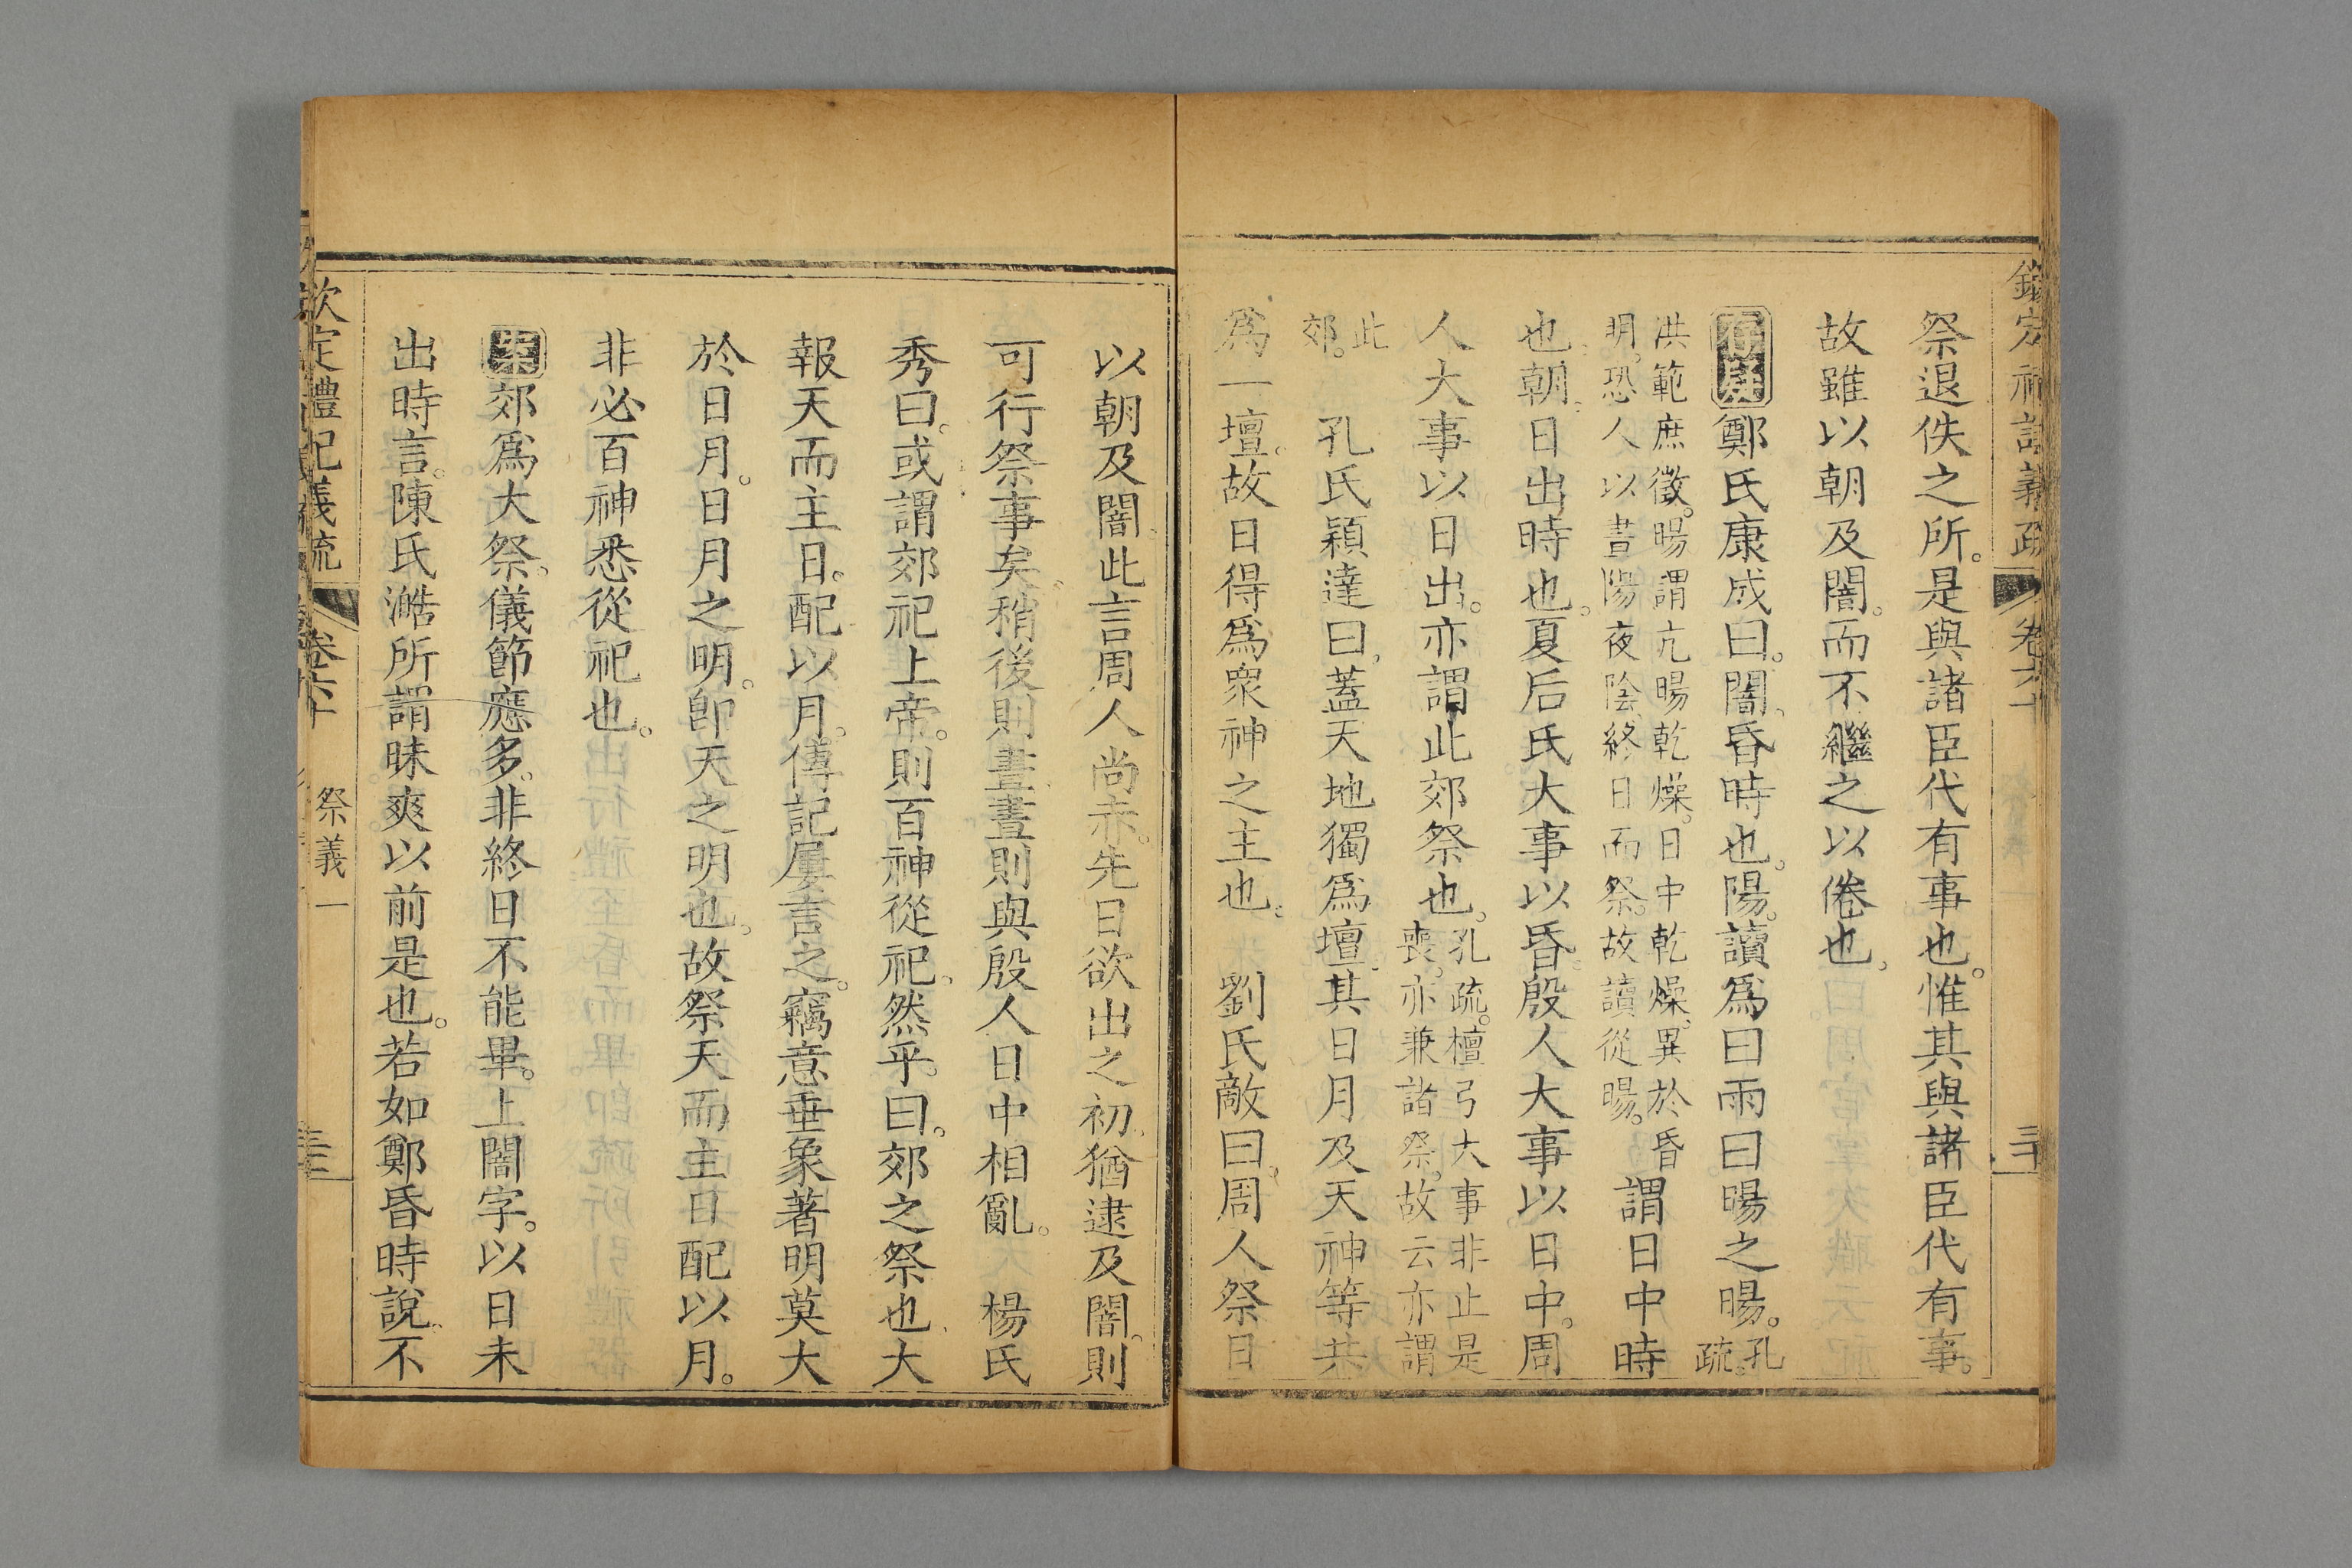 祭退佚之所。是與諸臣代有事也。惟其與諸臣代有事。
故雖以朝及闇。而不繼之以倦也。
存疑鄭氏康成曰。闇。昏時也。陽。讀爲曰雨曰暘之暘。孔疏。
洪範庶徵。暘謂亢暘乾燥。日中乾燥。異於昏
明。恐人以晝陽夜陰。終日而祭。故讀從暘。
謂日中時
也。朝。日出時也。夏后氏大事以昏。殷人大事以日中。周
人大事以日出。亦謂此郊祭也。
孔疏。檀弓大事非止是
喪。亦兼諸祭。故云亦謂
此
郊。
孔氏穎達曰。蓋天地獨爲壇。其日月及天神等共
爲一壇。故日得爲衆神之主也。 劉氏敵曰。周人祭日
以朝及闇。此言周人尚赤。先日欲出之初。猶逮及闇。則
可行祭事矣。稍後則晝。晝則與殷人日中相亂。 楊氏
秀曰。或謂郊祀上帝。則百神從祀。然乎。曰。郊之祭也。大
報天而主日。配以月。傳記屢言之。竊意垂象著明莫大
於日月。日月之明。卽天之明也。故祭天而主日配以月。
非必百神悉從祀也。
案郊爲大祭。儀節應多。非終日不能畢。上闇字。以日未
出時言。陳氏澔所謂昧爽以前是也。若如鄭昏時說。不
欽定禮記義疏 卷六十 祭義一